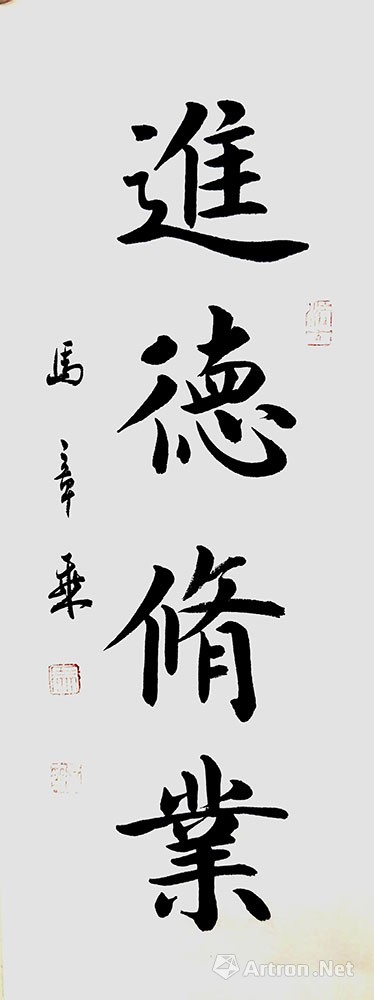 進德脩業
馬章乘
Artron.Net